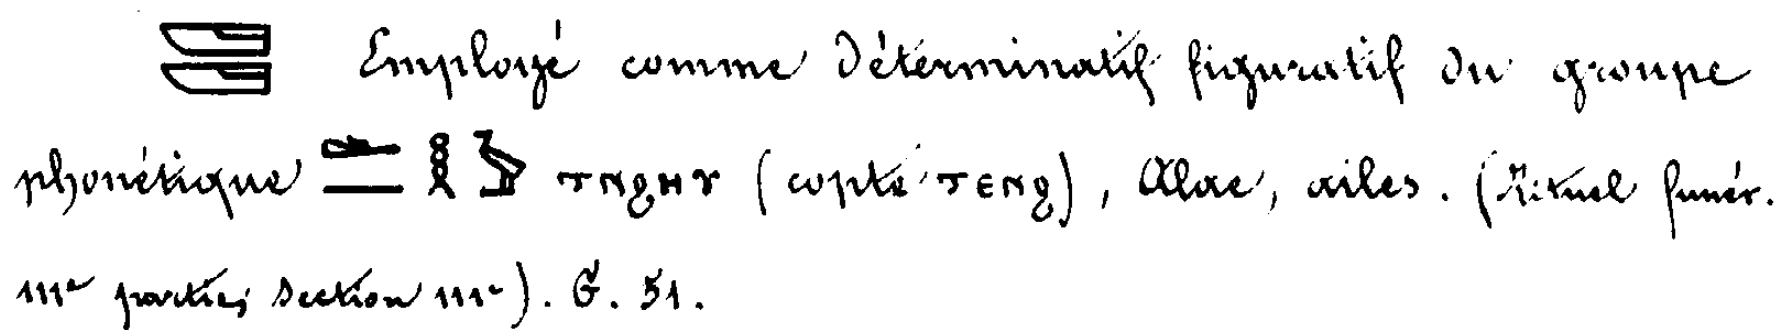 Employé comme déterminatif figuratif du groupe
phonétique ⲧⲛϩⲏⲩ (copte ⲧⲉⲛϩ), Alae, ailes. (Rituel funér.
IIIe partie, section IIIe). G. 51.